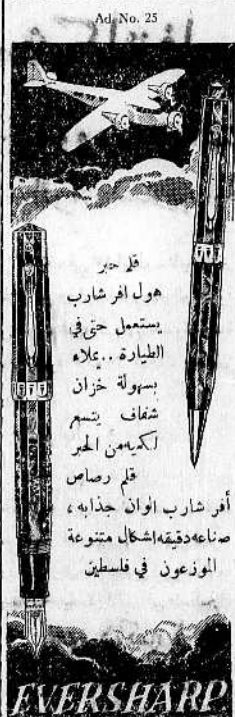 Ad No. 25
قلم حبر
هول افر شارب
يستعمل حتى في
الطيارة .. يملاء
بسهولة خزان
شفاف يتسع
لكميه من الحبر
قلم رصاص
أفر شارب الوان جذابه ،
صناعه دقيقه اشكال متنوعة
الموزعون في فلسطين
EVERSHARP